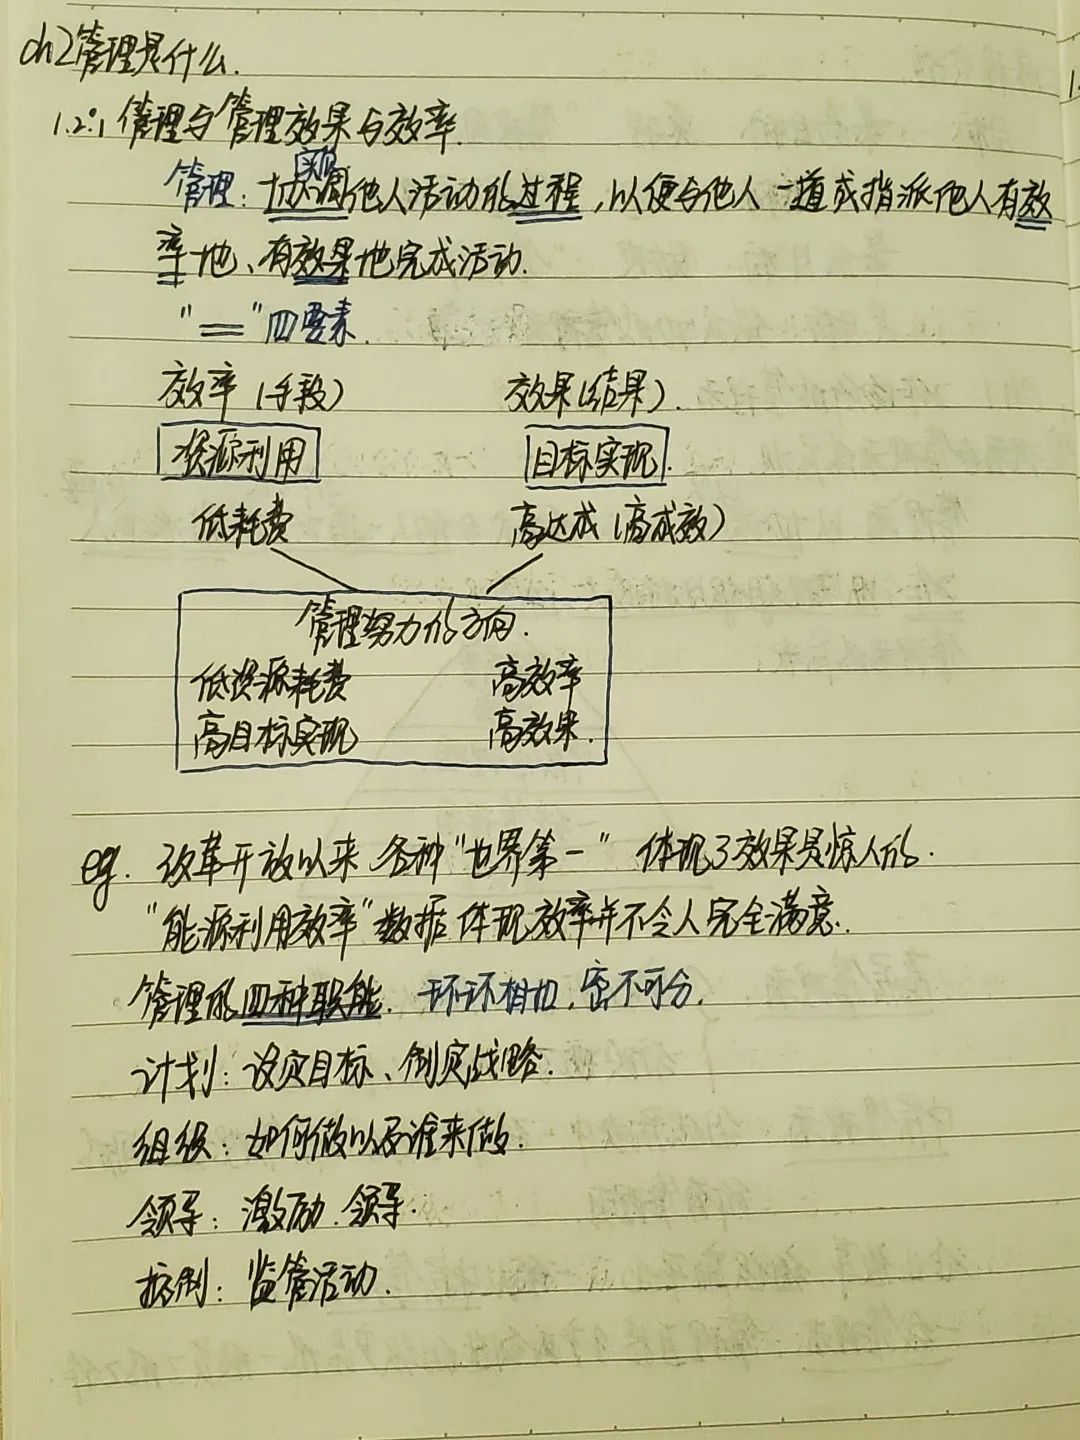 ch2管理是什么.
1.2.1 管理与管理效果与效率.
实现
管理: 协调他人活动的过程, 以便与他人一道或指派他人有效
率地、有效果地完成活动.
"=="四要素.
效率(手段) 效果(结果).
资源利用 目标实现.
低耗费 高达成(高成效)
管理努力的方向.
低资源耗费 高效率
高目标实现 高效果.
eg. 改革开放以来 各种"世界第一" 体现了效果是惊人的.
"能源利用效率"数据 体现效率并不令人完全满意.
管理的四种职能. 环环相扣, 密不可分.
计划: 设定目标、制定战略.
组织: 如何做以及谁来做.
领导: 激励. 领导.
控制: 监管活动.